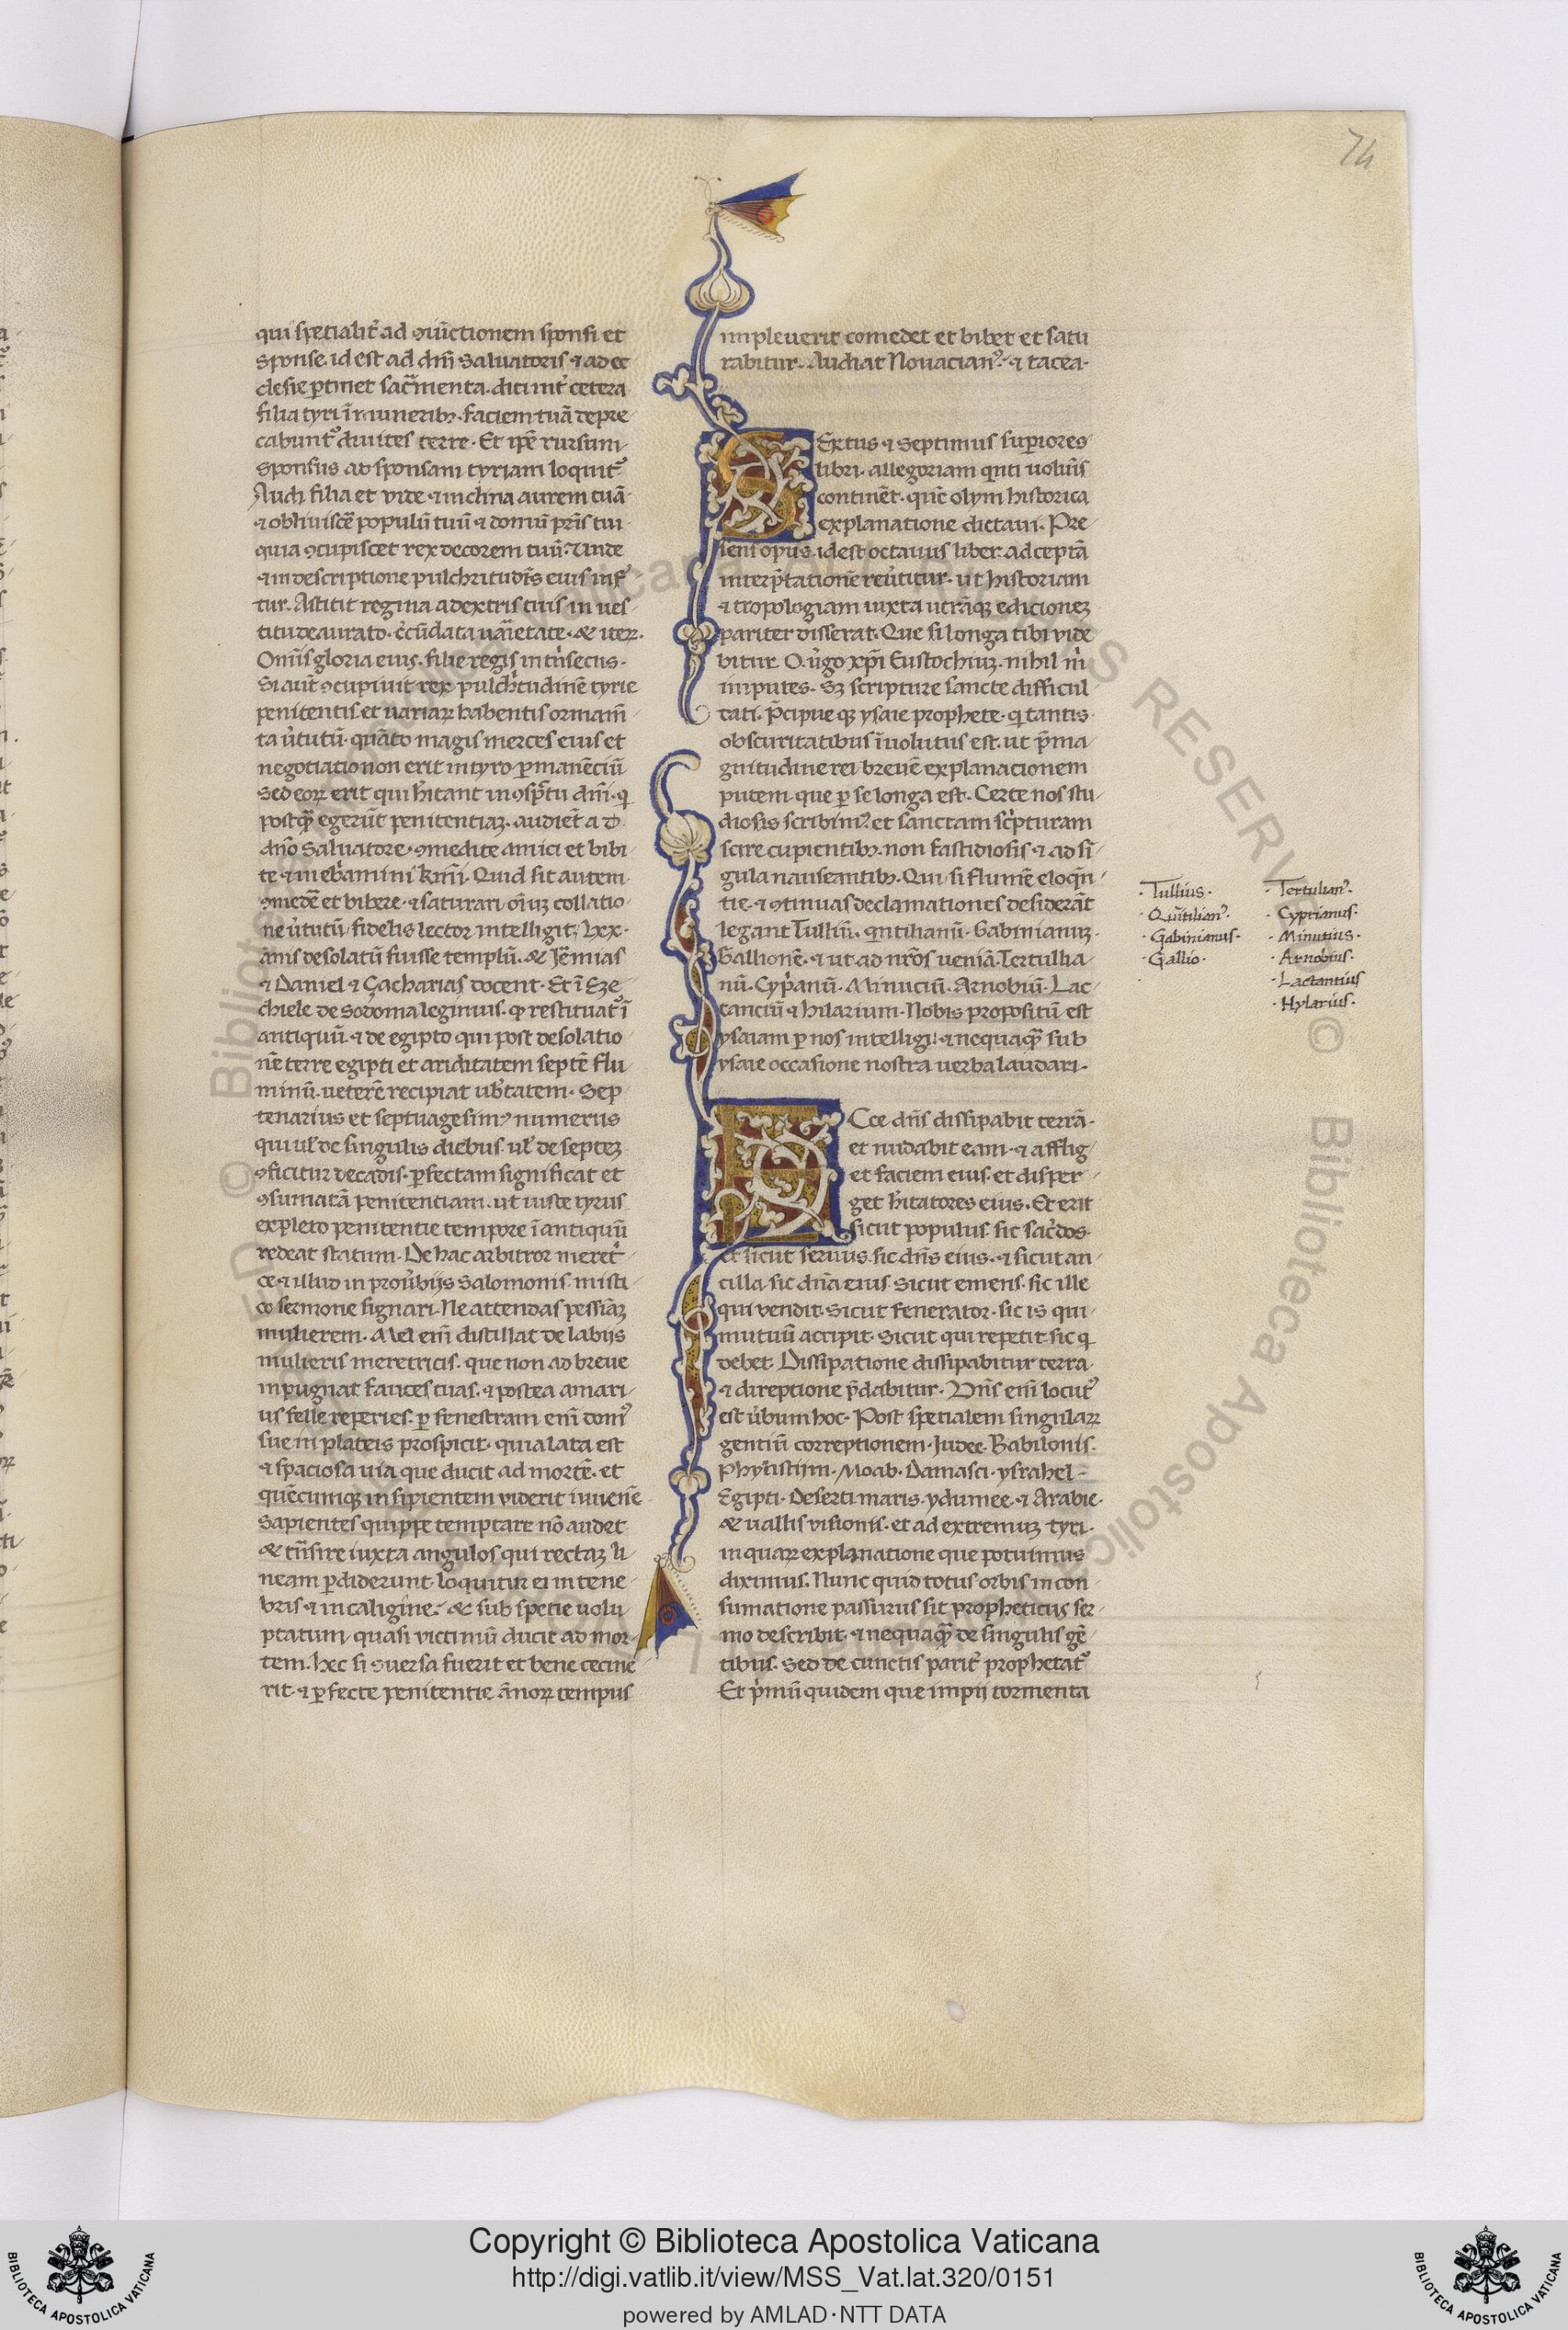 74
qui spetialit̃ ad ꝯiũctionem sponsi et
sponse. id est ad dñi Saluatoris ⁊ ad ec
clesie ꝑtinet sac̃menta. dicit̃ int̃ cetera
filia tyri ĩ muneribꝫ. faciem tuã depre
cabunt᷒ diuites terre. Et ip̃e rursum
sponsus ad sponsam tyriam loquit᷒
Audi filia et vide ⁊ inclina aurem tuã
⁊ obliuiscẽ populũ tuũ ⁊ domũ p̃ris tui
quia ꝯcupiscet rex decorem tuũ. Unde
⁊ in descriptione pulchritudĩs eius infer᷒
tur. Astitit regina a dextris tuis in ues
titu deaurato. c̃cũdata uarietate. & iteꝝ.
Om̃is gloria eius. filie regis intrĩsecus.
Si aut̃ ꝯcupiuit rex pulch̃tudinẽ tyrie
penitentis et uariaꝝ habentis ornam̃
ta ũtutũ. quãto magis merces eius et
negotiatio non erit in tyro ꝑmanẽciũ
Sed eoꝝ erit qui h̃itant in ꝯsp̃tu dñi. ꝙ
postꝙ̃ egerũt penitentiaꝫ. audiẽt a d
dño Saluatore. ꝯmedite amici et bibi
te ⁊ inebriamini k̃mi. Quid sit autem
ꝯmedẽ et bibere. ⁊ saturari oĩuꝫ collatio
ne ũtutũ fidelis lector intelligit. Lxx.
ãnis desolatũ fuisse templũ. & Jẽmias
⁊ Daniel ⁊ Çacharias docent. Et ĩ Eze
chiele de Sodoma legimus. ꝙ restituat᷒ ĩ
antiquũ. ⁊ de egipto qui post desolatio
nẽ terre egipti et ariditatem septẽ flu
minũ. ueterẽ recipiat ub̃tatem. Sep
tenarius et septuagesim᷒ numerus
qui uł de singulis diebus uł de septeꝫ
ꝯficitur decadis. ꝑfectam significat et
ꝯsumatã penitentiam. ut iuste tyrus
expleto penitentie tempore ĩ antiquũ
redeat statum. De hac arbitror meret̃
ce ⁊ illud in prou̾bijs Salomonis misti
co sermone signari. Ne attendas pessiãꝫ
mulierem. Mel enĩ distillat de labijs
mulieris meretricis. que non ad breue
inpugnat fauces tuas. ⁊ postea amari
us felle reperies. ꝑ fenestram enĩ dom᷒
sue in plateis prospicit. quia lata est
⁊ spaciosa uia que ducit ad mortẽ. et
quẽcumqꝫ insipientem viderit iuuenẽ
Sapientes quippe temptare nõ audet
& tñsire iuxta angulos qui rectaꝫ li
neam ꝑdiderunt. loquitur ei in tene
bris ⁊ in caligine. & sub spetie uolu
ptatum quasi victimũ ducit ad mor
tem. hec si ꝯuersa fuerit et bene cecine
rit. ⁊ ꝑfecte penitentie ãnoꝝ tempus
impleuerit comedet et bibet et satu
rabitur. Audiat Nouacian᷒. ⁊ tacea.
SExtus ⁊ Septimus sup̱iores
libri. allegoriam qnti uolũis
continẽt. quẽ olym historica
explanatione dictaui. Pre
sens opus. id est octauus liber. ad ceptã
interp̃tationẽ reũtitur. ut historiam
⁊ tropologiam iuxta utrãqꝫ edicioneꝫ
pariter disserat. Que si longa tibi vide
bitur. O. ũgo xp̃i Eustochiuꝫ. nihil m̃
imputes. Sꝫ scripture sancte difficul
tati. P̃cipue qꝫ ysaie prophete. ꝙ tantis
obscuritatibus ĩuolutus est. ut p̃ ma
gnitudine rei breuẽ explanacionem
putem. que ꝑ se longa est. Certe nos stu
diosis scribim᷒. et sanctam sc̃pturam
scire cupientibꝫ. non fastidiosis ⁊ ad sĩ
gula nauseantibꝫ. Qui si flumẽ eloq̃n
tie. ⁊ ꝯtinuas declamationes desiderãt
legant Tulliũ. qntilianũ. Gabinianuꝫ.
Gallionẽ. ⁊ ut ad nr̃os ueniã. Tertullia
nũ. Cyp̃anũ. Minuciũ. Arnobiũ. Lac
tanciũ ⁊ hilarium. Nobis propositũ est
ysaiam ꝑ nos intelligi. ⁊ nequaꝙ̃ sub
ysaie occasione nostra uerba laudari.
ECce dñs dissipabit terrã.
et nudabit eam. ⁊ afflig
et faciem eius. et disper
get h̃itatores eius. Et erit
sicut populus. sic sac̃dos.
et sicut seruus. sic dñs eius. ⁊ sicut an
cilla. sic dña eius. Sicut emens. sic ille
qui vendit. Sicut fenerator. sic is qui
mutuũ accipit. Sicut qui repetit sic ꝙ
debet. Dissipatione dissipabitur terra.
⁊ direptione p̃dabitur. Dñs enĩ locut᷒
est ũbum hoc. Post spetialem singulaꝝ
gentiũ correptionem. Judee. Babilonis.
Phylistijm. Moab. Damasci. ysrahel.
Egipti. Deserti maris. ydumee. ⁊ Arabie.
& uallis visionis. et ad extremuꝫ tyri.
in quaꝝ explanatione que potuimus
diximus. Nunc quid totus orbis in con
sumatione passurus sit propheticus ser
mo describit. ⁊ nequaꝙ̃ de singulis gẽ
tibus. Sed de cunctis parit̃ prophetat᷒
Et p̃mũ quidem que impij tormenta
. Tullius.
. Quĩtilian᷒.
. Gabinianus.
. Gallio.
. Tertulian᷒.
. Cyprianus.
. Minutius.
. Arnobius.
. Lactantius
. Hylarius.
Copyright © Biblioteca Apostolica Vaticana
http://digi.vatlib.it/view/MSS_Vat.lat.320/0151
powered by AMLAD·NTT DATA
BIBLIOTECA APOSTOLICA VATICANA
BIBLIOTECA APOSTOLICA VATICANA